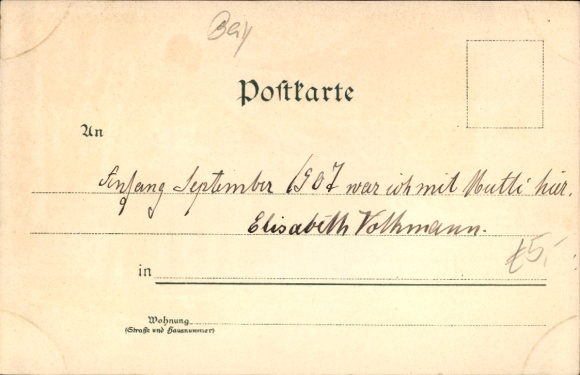 Bay
Postkarte
An
Anfang September 1907 war ich mit Mutti hier.
Elisabeth Volkmann.
£5,-
in
Wohnung
(Straße und Hausnummer)